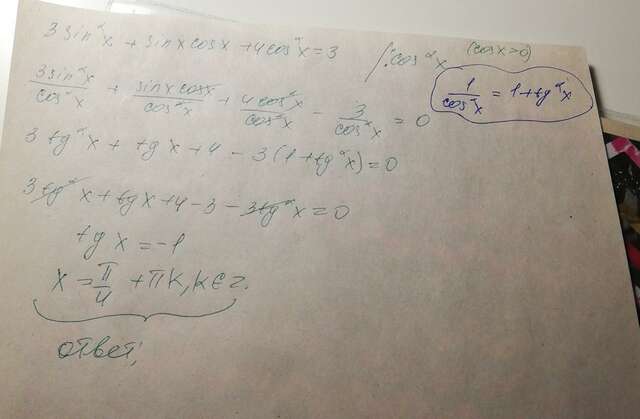 3sin²x + sinxcosx + 4cos²x = 3 /:cos²x (cosx>0)
3sin²x/cos²x + sinxcosx/cos²x + 4cos²x/cos²x - 3/cos²x = 0
1/cos²x = 1+tg²x
3tg²x + tgx + 4 - 3(1+tg²x) = 0
3tg²x + tgx + 4 - 3 - 3tg²x = 0
tgx = -1
x = π/4 + πk, k∈z.
ответ;